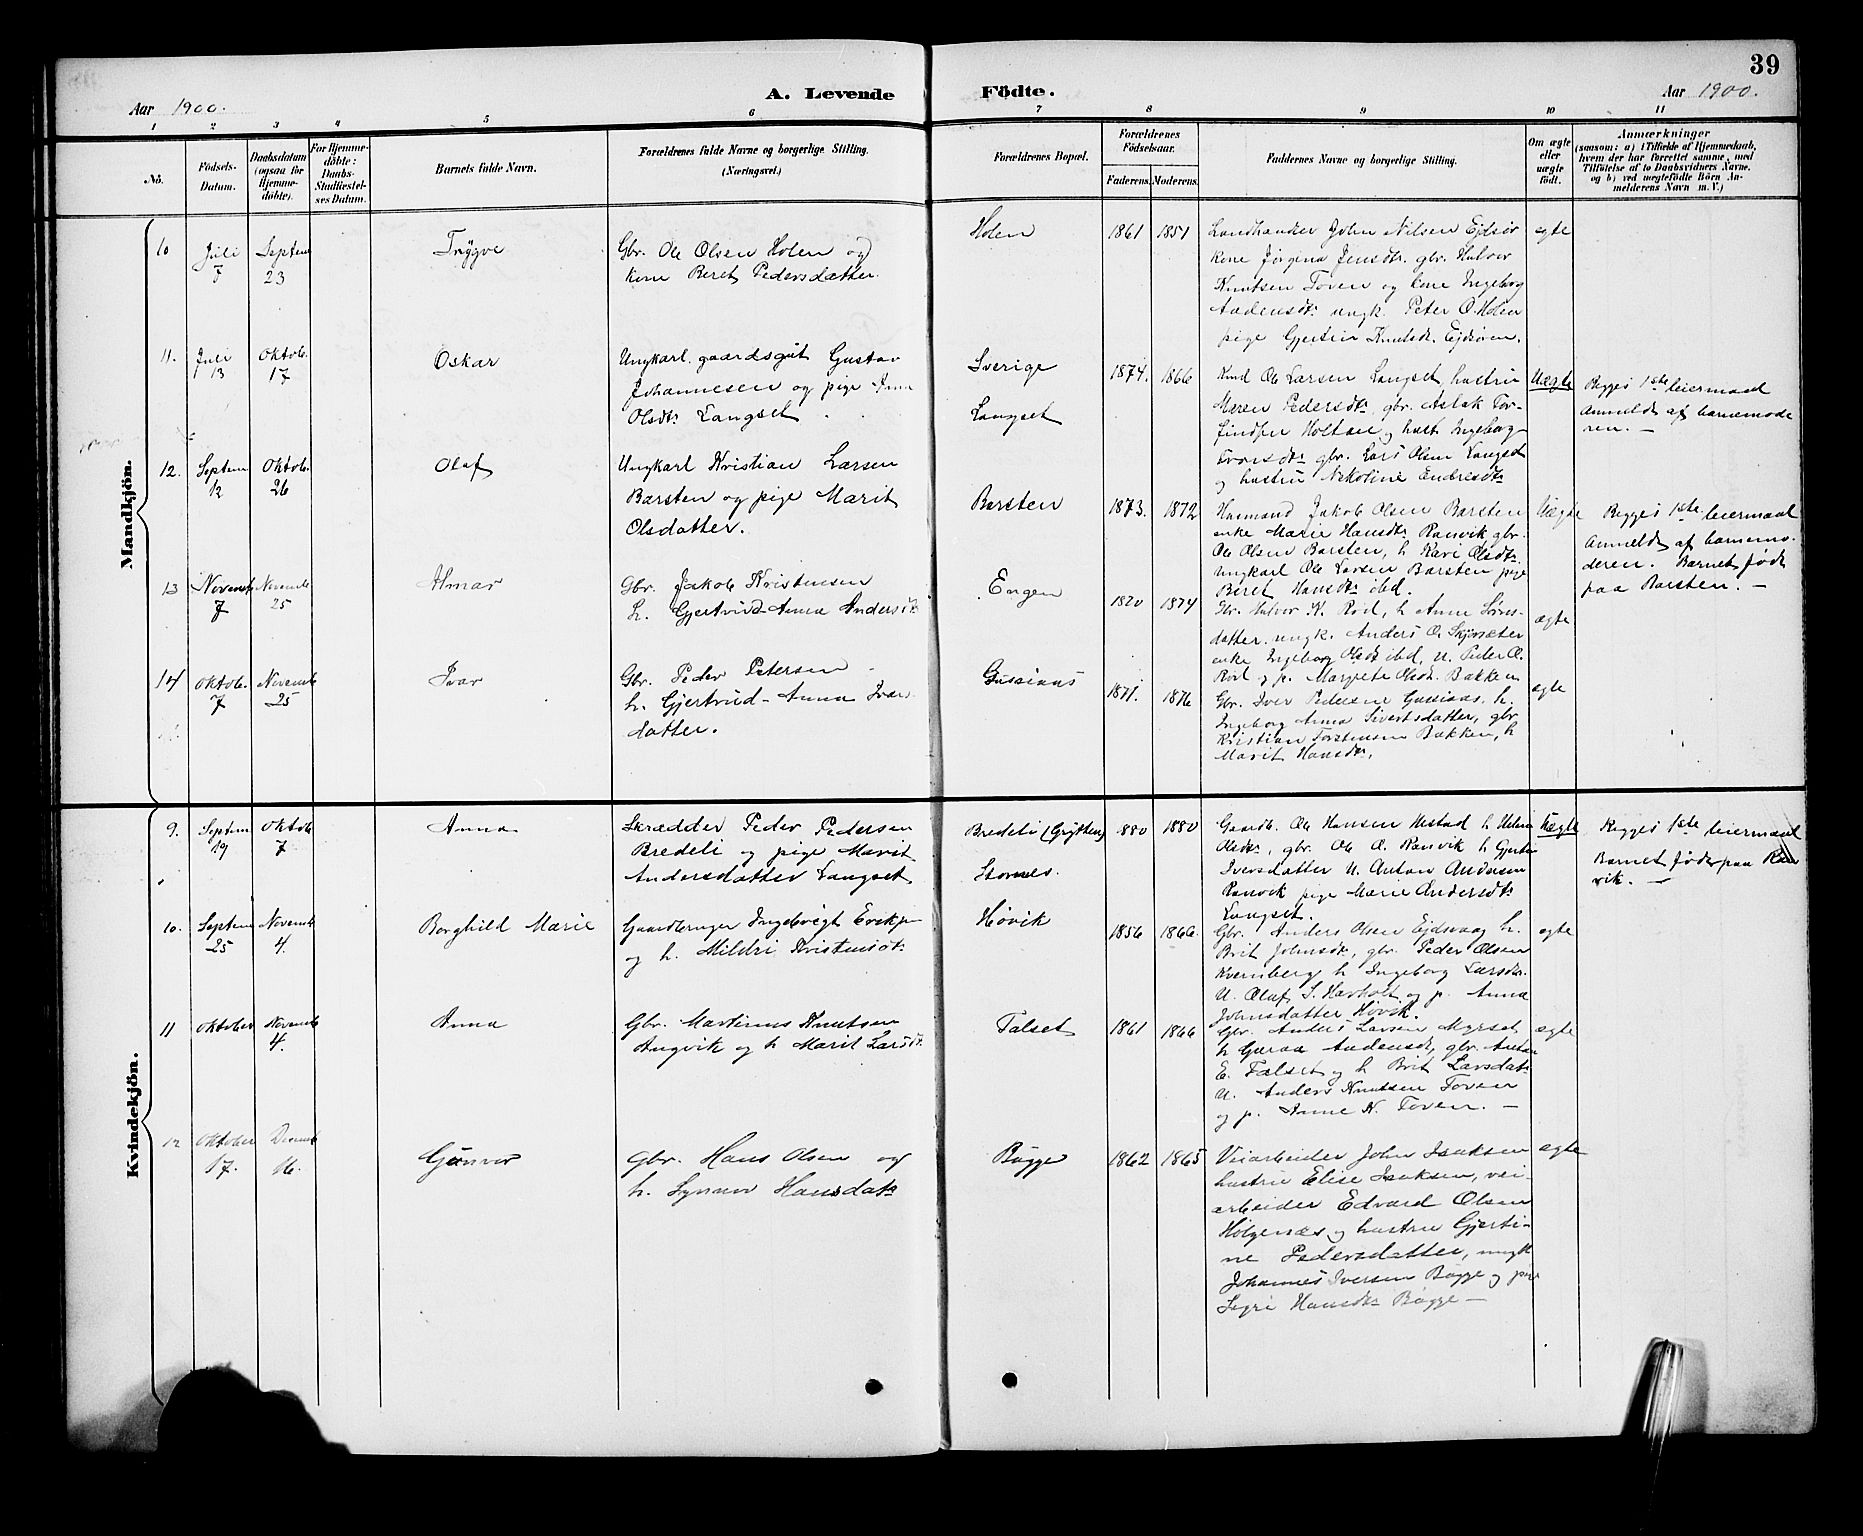 39
Aar 1900.
A. Levende Födte.
Aar 1900.
1 2 3 4 5 6 7 8 9 10 11
No.
Födsels-
Datum.
Daabsdatum
(ogsaa for
Hjemme-
döbte).
For Hjemme-
döbte:
Daabs-
Stadfæstel-
ses Datum.
Barnets fulde Navn.
Forældrenes fulde Navne og borgerlige Stilling.
(Næringsvei.)
Forældrenes Bopæl.
Forældrenes
Födselsaar.
Faderens. Moderens.
Faddernes Navne og borgerlige Stilling.
Om ægte
eller
uægte
født.
Anmærkninger
(saasom: a) i Tilfælde af Hjemmedaab,
hvem der har forrettet samme, med
Tilföielse af to Daabsvidners Navne,
og b) ved uægtefödte Börn An-
melderens Navn m. V.)
Mandkjön.
10
Juli
5
Septem
23
Trygve
Gbr. Ole Olsen Holen og
kone Beret Pedersdatter
Holen
1861 1851
Landhandler John Nilsen Ejdsör
kone Jörgina Jensdtr. gbr. Halvor
Knutsen Toven og kone Ingeborg
Andersdtr. ungk. Peter O. Holen
pige Gjertine Knutsdt. Ejdsören.
egte
11.
Juli
13
Oktob.
17
Oskar
Ungkarl. gaardsgut Gustav
Johannesen og pige
Olsdtr. Langset
Sverige
Langset
1874. 1866
Ole Larsen Langset, hustru
Maren Pedersdtr. gbr. Aslak Tor-
Holtan og hust. Ingeborg
gbr. Lars Olsen Langset
og hustru Nikoline Endresdtr.
Uægte
Begges 1ste leiermaal
Anmeldt af barnemode
ren. —
12.
Septem
12
Oktob.
26
Olaf
Ungkarl Kristian Larsen
Barsten og pige Marit
Olsdatter.
Barsten
1873. 1872
Husmand Jakob Olsen Barsten
enke Marie Hansdtr. Ranvik gbr.
Ole Olsen Barsten, h. Kari Olsdtr.
ungkarl Ole Larsen Barsten pige
Beret Hansdtr. ibd.
Uægte
Begges 1ste leiermaal
Anmeldt af barnemo-
deren. Barnet født
paa Barsten. —
13
Novemb
7
Novemb
25
Almar
Gbr. Jakob Kristensen
h. Gjertrud Anna Andersdt.
Engen
1870 1874
Gbr. Halvor K. Röd, h. Anne
datter. ungk. Anders O.
enke Ingeborg Olsdt. ibd. U. Peder
Röd og p. Margrete Olsdt. Bakken
ægte
14
Oktob.
7
Novemb
25
Ivar
Gbr. Peder Petersen
h. Gjertrud-Anna Ivar-
datter.
Gussiaas
1871. 1876
Gbr. Iver Pedersen Gussiaas, h.
Ingeborg Anna Sivertsdatter, gbr.
Kristian Torstensen Bakken, h
Marit Hansdtr.
ægte
Kvindekjön.
9.
Septem
19
Oktob
7
Anna
Skrædder Peder Pedersen
Bredeli og pige Marit
Andersdatter Langset
Bredeli (Grytten)
1880 1880
Gaardb. Ole Hansen Ustad h
Olsdtr., gbr. Ole Ranvik h Gjertine
Iversdatter U. Anton Andersen
Ranvik pige Marie Andersdtr.
Langset.
Uægte
Begges 1ste leiermaal
Barnet født paa Ran
vik. —
10.
Septem
25
Novemb
4.
Borghild Marie
Gaardbruger Ingebrigt
og h. Mildri Kristensdtr.
Hövik
1856 1866.
Gbr. Anders Olsen Ejdsvaag h.
Brit Johnsdtr., gbr. Peder Olsen
Kvernberg h Ingeborg Larsdtr.
U. Olaf og p. Anna
Johnsdatter Hövik.
egte
11
Oktober
Novemb
4.
Anna
Gbr. Martinus Knutsen
Angvik og h Marit Larsdt.
Talset
1861 1866
Gbr. Anders Larsen Myrset,
h Andersdt, gbr.
E. Talset og h Brit Larsdatr
U. Anders Knutsen Toven
og p. Anne K. Toven. —
ægte
12
Oktober
17.
16.
Gunvor
Gbr. Hans Olsen og
h. Hansdatr
Bugge
1862 1865
Veiarbeider John Isaksen
hustru Elise Isaksen, vei-
arbeider Edvard Olsen
Holgenæs og hustru Gjerti-
ne Pedersdatter, ungk
Johannes Iversen Bugge og pige
Sigri Hansdtr Bugge —
egte